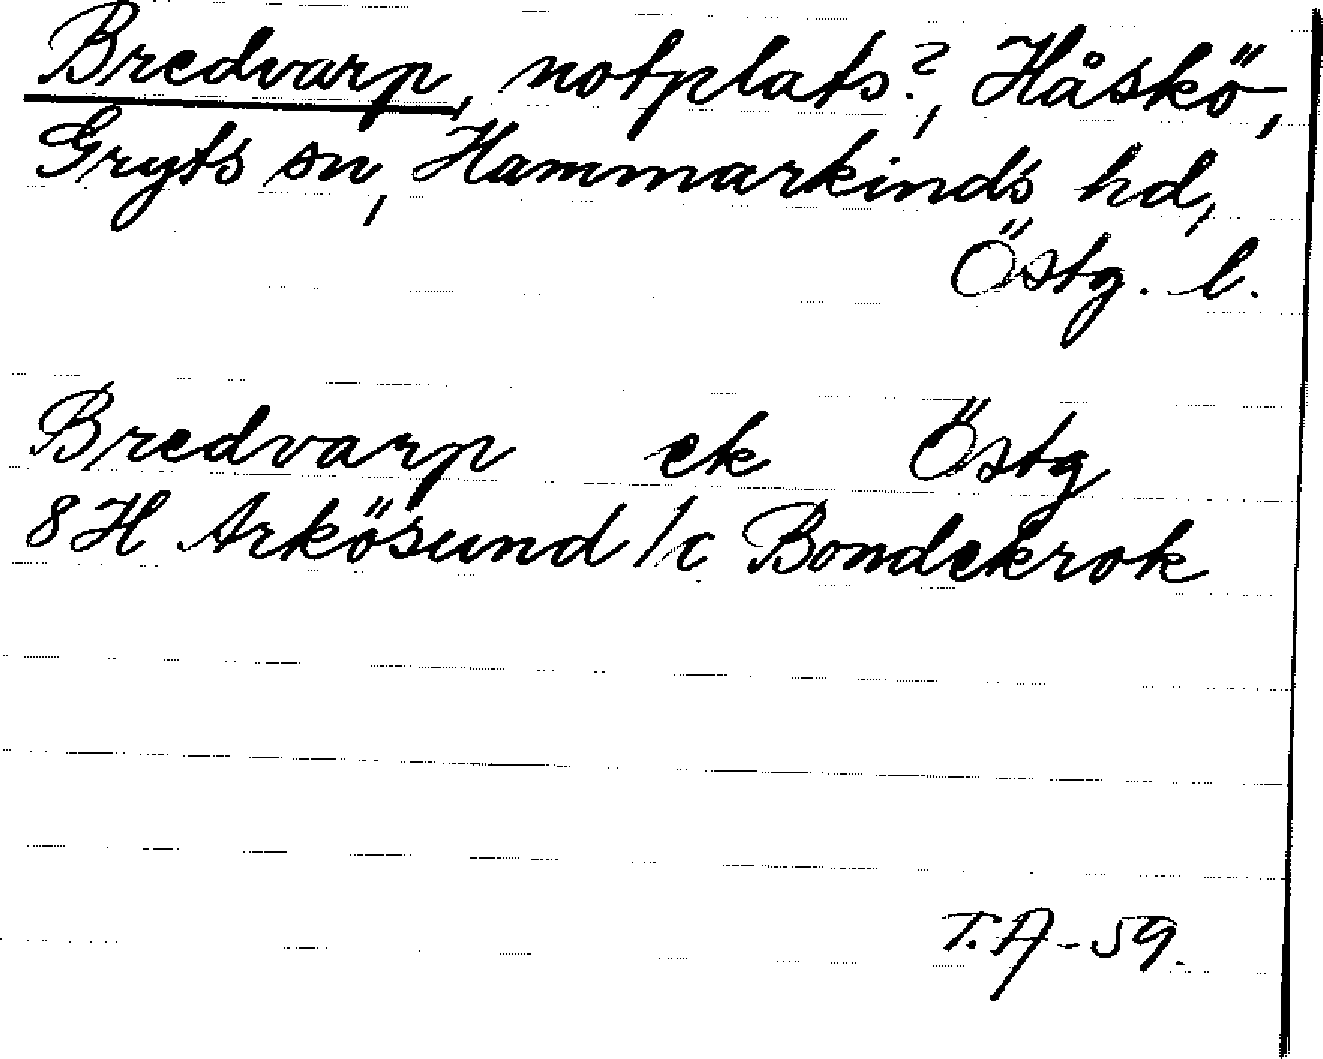 Bredvarp, notplats?, Håskö,
Gryts sn, Hammarkinds hd,
Östg. l.
Bredvarp ek Östg
8H Arkösund /c Bondekrok
T.A-59.